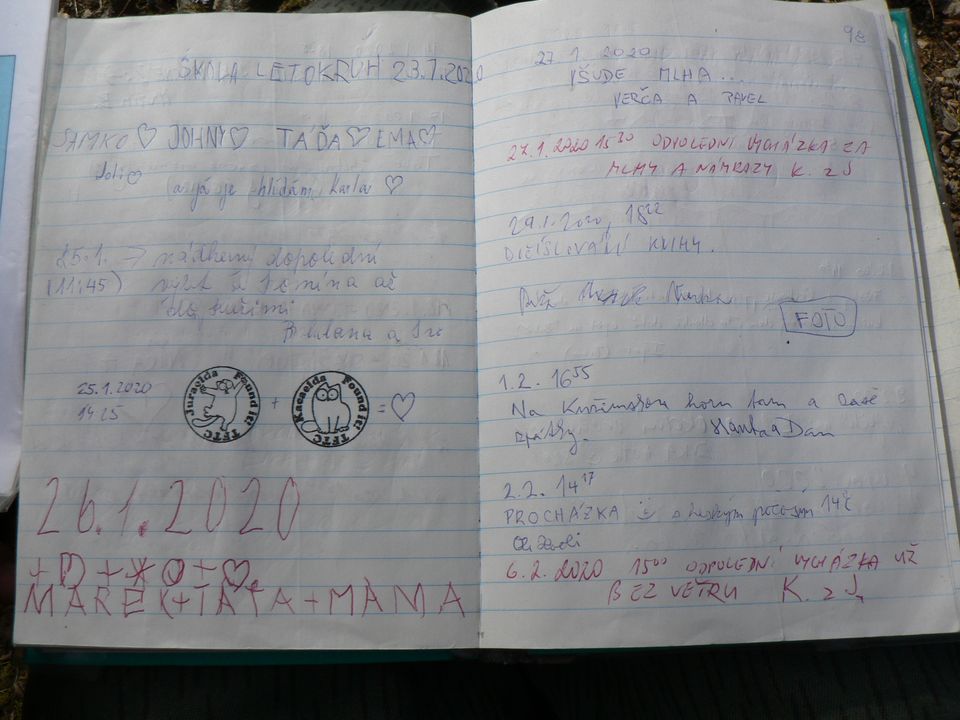 ŠKOLA LETOKRUH 23.1.2020
SAMKO ♡ JOHNY ♡ TÁĎA ♡ EMA ♡
a já je hlídám ♡
25.1. → nádherný dopolední
(11:45)
a
25.1.2020
14.25
Juraelda Found it! TFTC
+
Kacaelda Found it! TFTC
= ♡
26.1.2020
MAREK + TÁTA + MÁMA
98
27.1.2020
VŠUDE MLHA...
VERČA A PAVEL
27.1.2020 15³⁰ ODPOLEDNÍ VYCHÁZKA ZA
MLHY A NÁMRAZY K. z J
29.1.2020, 18²²
DOČÍSLOVÁNÍ KNIHY.
FOTO
1.2. 16⁵⁵
Na horu tam a zase
zpátky. Hanka a Dan
2.2. 14¹⁷
PROCHÁZKA s hezkým počasím 14°C
6.2.2020 15⁰⁰ ODPOLEDNÍ VYCHÁZKA UŽ
BEZ VĚTRU K. z J.